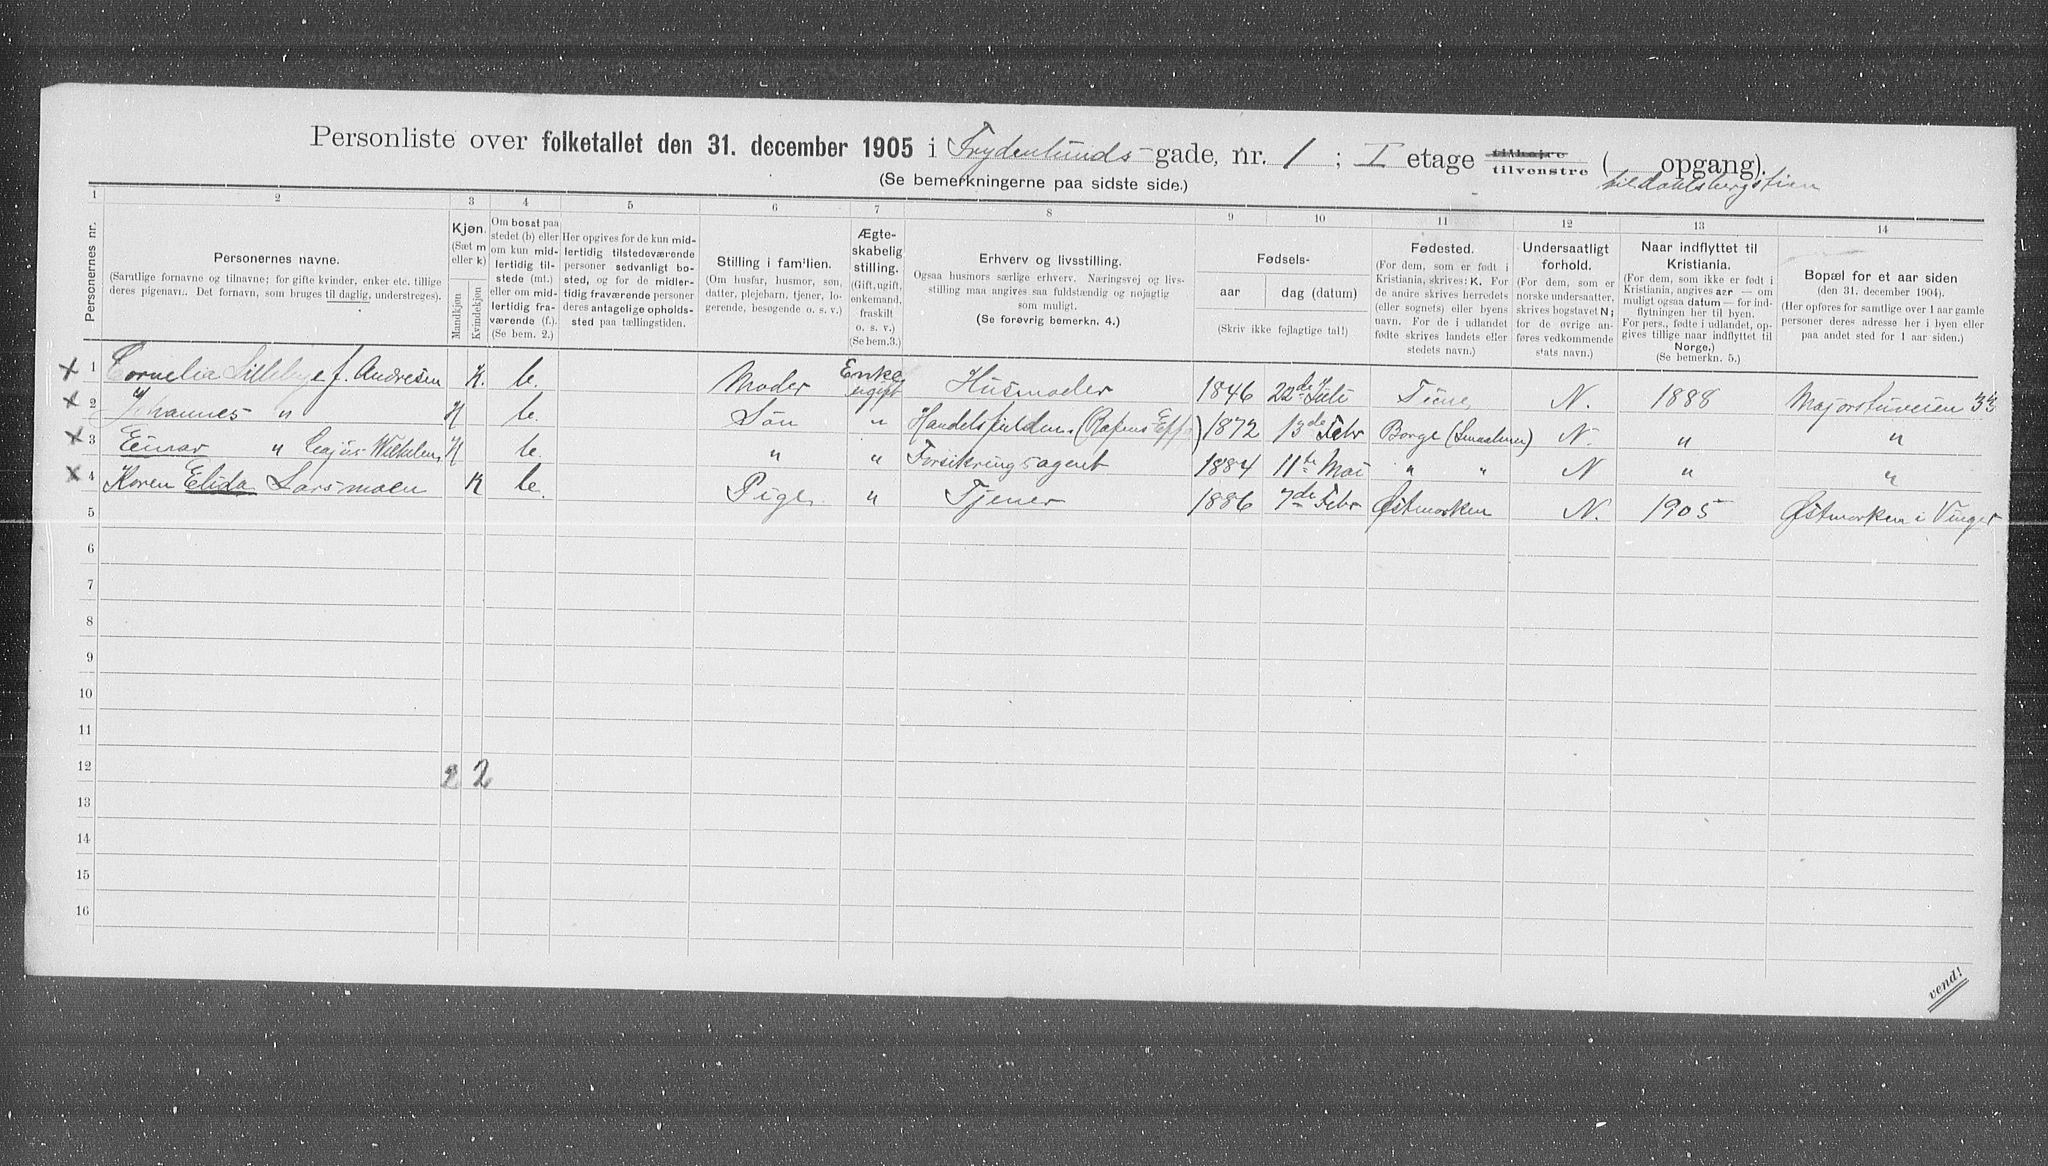 Personliste over folketallet den 31. december 1905 i Frydenlunds-gade, nr. 1; I etage tilhøjre tilvenstre ( opgang).
(Se bemerkningerne paa sidste side.)
1 2 3 4 5 6 7 8 9 10 11 12 13 14
Personernes nr.
Personernes navne.
(Samtlige fornavne og tilnavne; for gifte kvinder, enker etc. tillige
deres pigenavn. Det fornavn, som bruges til daglig, understreges).
Kjøn.
(Sæt m
eller k)
Mandkjøn
Kvindekjøn
Om bosat paa
stedet (b) eller
om kun mid-
lertidig til-
stede (mt.)
eller om mid-
lertidig fra-
værende (f.).
(Se bem. 2.)
Her opgives for de kun mid-
lertidig tilstedeværende
personer sedvanligt bo-
sted, og for de midler-
tidig fraværende personer
deres antagelige opholds-
sted paa tællingstiden.
Stilling i fam'lien.
(Om husfar, husmor, søn,
datter, plejebarn, tjener, lo-
gerende, besøgende o. s. v.)
Ægte-
skabelig
stilling.
(Gift, ugift,
enkemand,
fraskilt
o. s. v.)
(Se bem.3.)
Erhverv og livsstilling.
Ogsaa husmors særlige erhverv. Næringsvej og livs-
stilling maa angives saa fuldstændig og nøjagtig
som muligt.
(Se forøvrig bemerkn. 4.)
Fødsels-
aar
dag (datum)
(Skriv ikke fejlagtige tal!)
Fødested.
(For dem, som er født i
Kristiania, skrives: K. For
de andre skrives herredets
(eller sognets) eller byens
navn. For de i udlandet
fødte skrives landets eller
stedets navn.)
Undersaatligt
forhold.
(For dem, som er
norske undersaatter,
skrives bogstavet N;
for de øvrige an-
føres vedkommende
stats navn.)
Naar indflyttet til
Kristiania.
(For dem, som ikke er født i
Kristiania, angives aar — om
muligt ogsaa datum — for ind-
flytningen her til byen.
For pers., fødte i udlandet, op-
gives tillige naar indflyttet til
Norge.)
(Se bemerkn. 5.)
Bopæl for et aar siden
(den 31. december 1904).
(Her opføres for samtlige over 1 aar gamle
personer deres adresse her i byen eller
paa andet sted for 1 aar siden.)
x 1 Cornelia Lilleby f. Andresen K. b. Moder Enke Husmoder 1846 22de Juli Tune, N. 1888 Majorstuveien 33
x 2 Johannes " M b. Søn ugift " 1872 13de Febr Borge (Smaalenene) N. " "
x 3 Einar " Cajus Wilhelm M b. " " Forsikringsagent 1884 11te Mai " " N " "
x 4 Karen Elida Larsmoen K b. Pige " Tjener 1886 7de Febr Østmarken N. 1905 Østmarken i Vinger
5
6
7
8
9
10
11
12 2 2
13
14
15
16
vend!